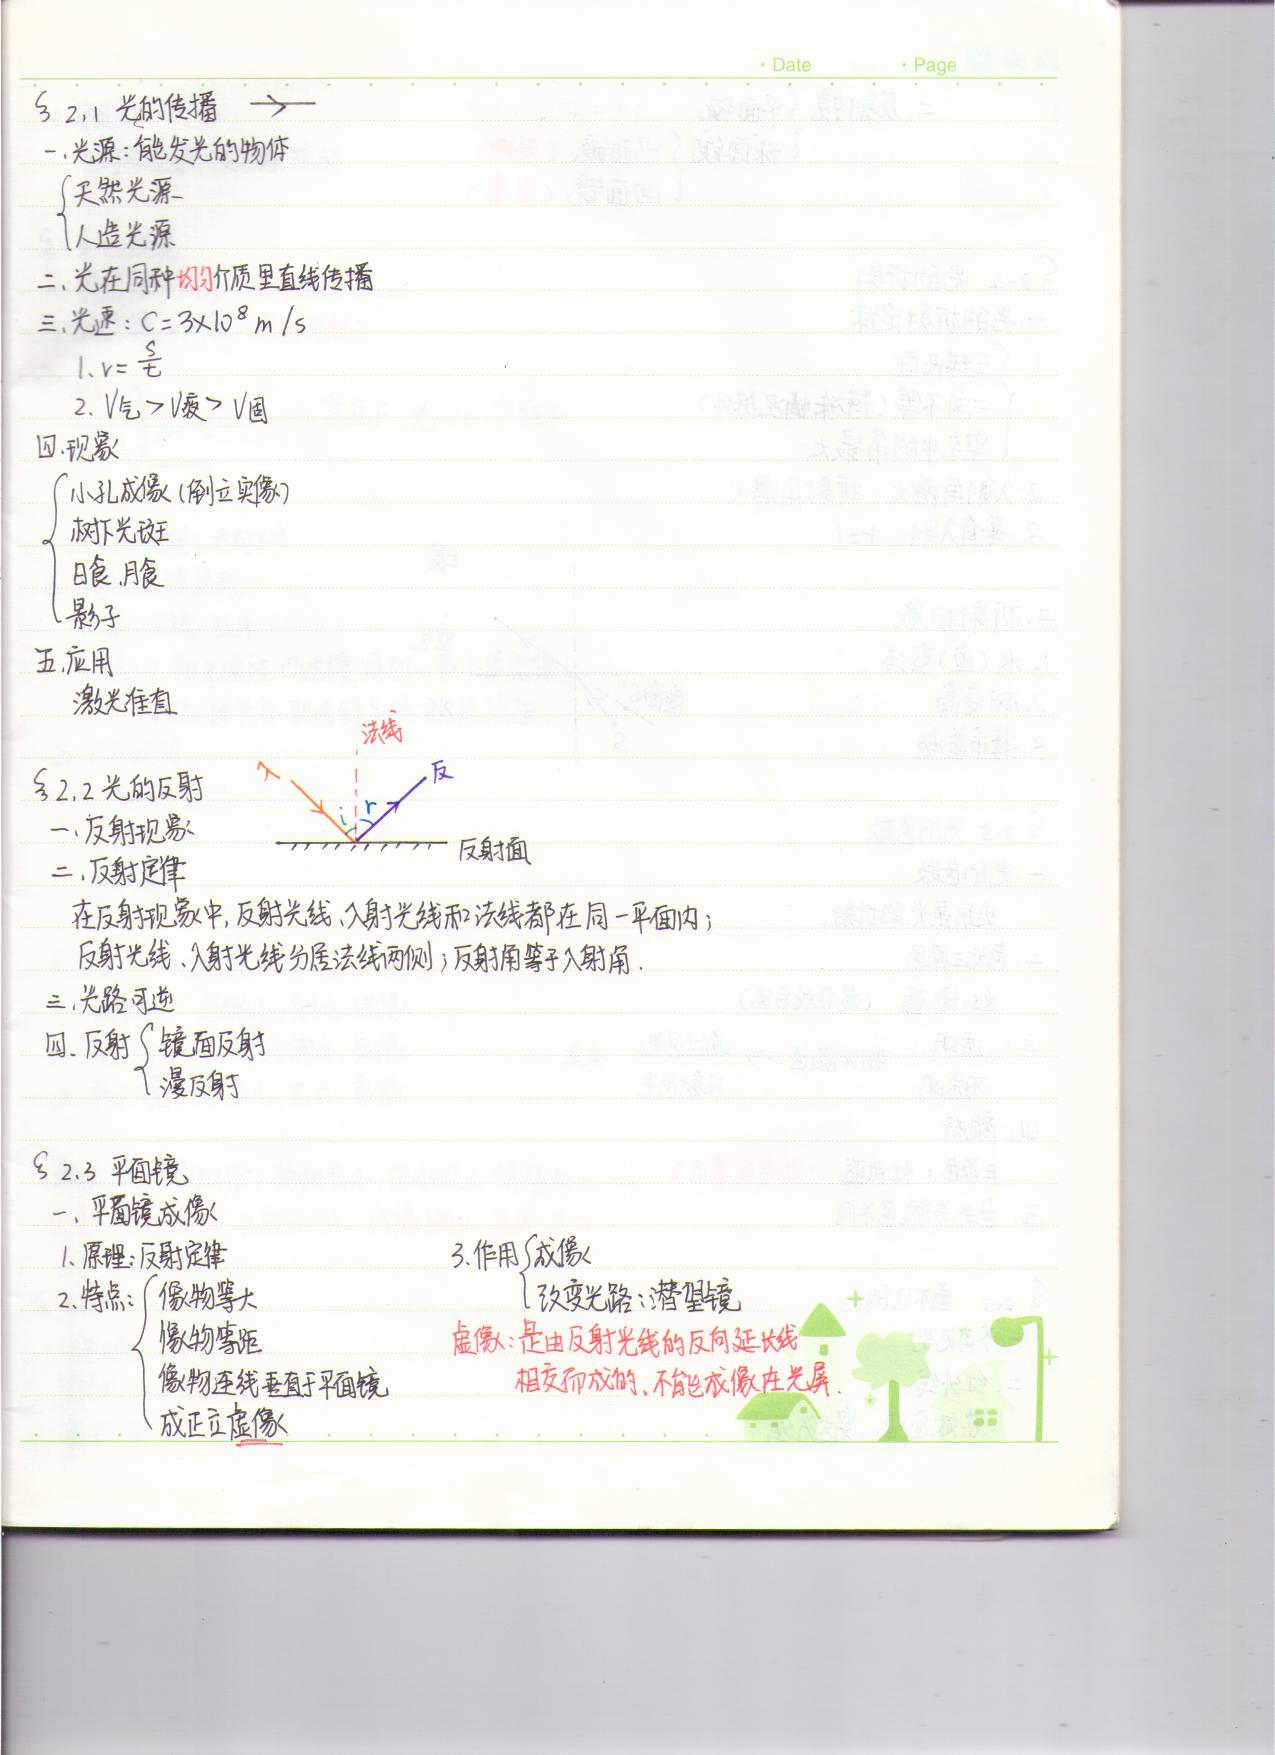 Date Page
§ 2.1 光的传播
一、光源：能发光的物体
天然光源
人造光源
二、光在同种均匀介质里直线传播
三、光速：C=3×10⁸ m/s
1. v= s/t
2. V气 > V液 > V固
四、现象
小孔成像（倒立实像）
树下光斑
日食、月食
影子
五、应用
激光准直
法线
入
反
i r
反射面
§ 2.2 光的反射
一、反射现象
二、反射定律
在反射现象中，反射光线、入射光线和法线都在同一平面内；
反射光线、入射光线分居法线两侧；反射角等于入射角．
三、光路可逆
四、反射 镜面反射
漫反射
§ 2.3 平面镜
一、平面镜成像
1、原理：反射定律
2、特点：像物等大
像物等距
像物连线垂直于平面镜
成正立虚像
3.作用 成像
改变光路：潜望镜
虚像：是由反射光线的反向延长线
相交而成的、不能成像在光屏．